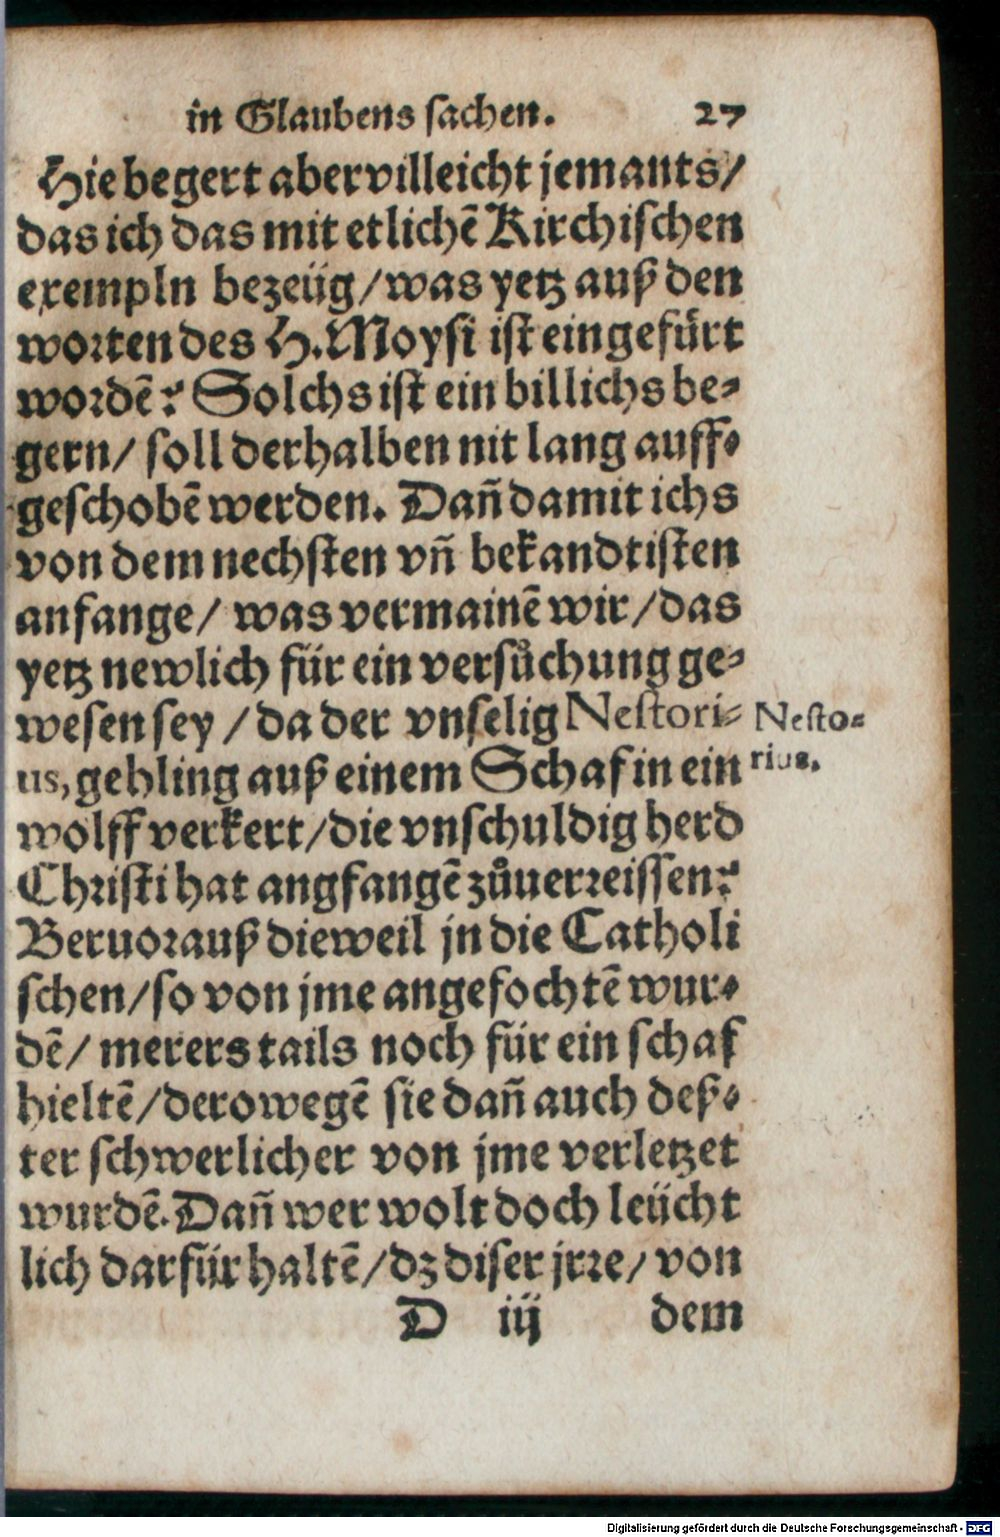 in Glaubens sachen. 27
Hie begert aber villeicht jemants/
das ich das mit etlichē Kirchischen
exempln bezeüg/was yetz auß den
worten des H. Moysi ist eingefürt
wordē? Solchs ist ein billichs be-
gern/ soll derhalben nit lang auff-
geschobē werden. Dañ damit ichs
von dem nechsten vñ bekandtisten
anfange/ was vermainē wir/das
yetz newlich für ein versůchung ge-
wesen sey /da der vnselig Nestori-
us, gehling auß einem Schaf in ein
wolff verkert/die vnschuldig herd
Christi hat angfangē zůuerreissen?
Beruorauß dieweil jn die Catholi
schen/so von jme angefochtē wur-
dē/ merers tails noch für ein schaf
hieltē/derowegē sie dañ auch deß-
ter schwerlicher von jme verletzet
wurdē. Dañ wer wolt doch leücht
lich darfür haltē/dz diser jrre/ von
D iij dem
Nesto-
rius.
Digitalisierung gefördert durch die Deutsche Forschungsgemeinschaft - DFG